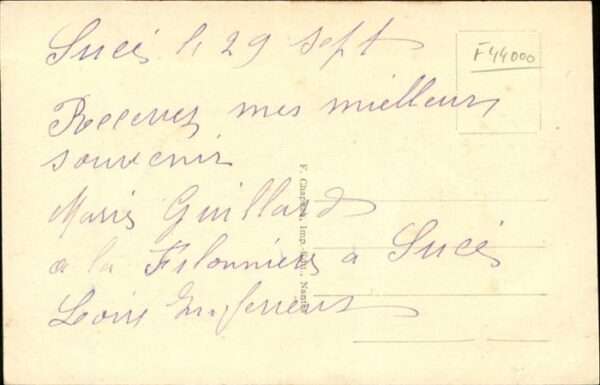 Sucé le 29 sept
F44000
Recevez mes meilleurs
souvenir
Marie Guillard
a la Filonnière a Sucé
Loire Inferieure
F. Chapeau, Imp.-Édit., Nantes